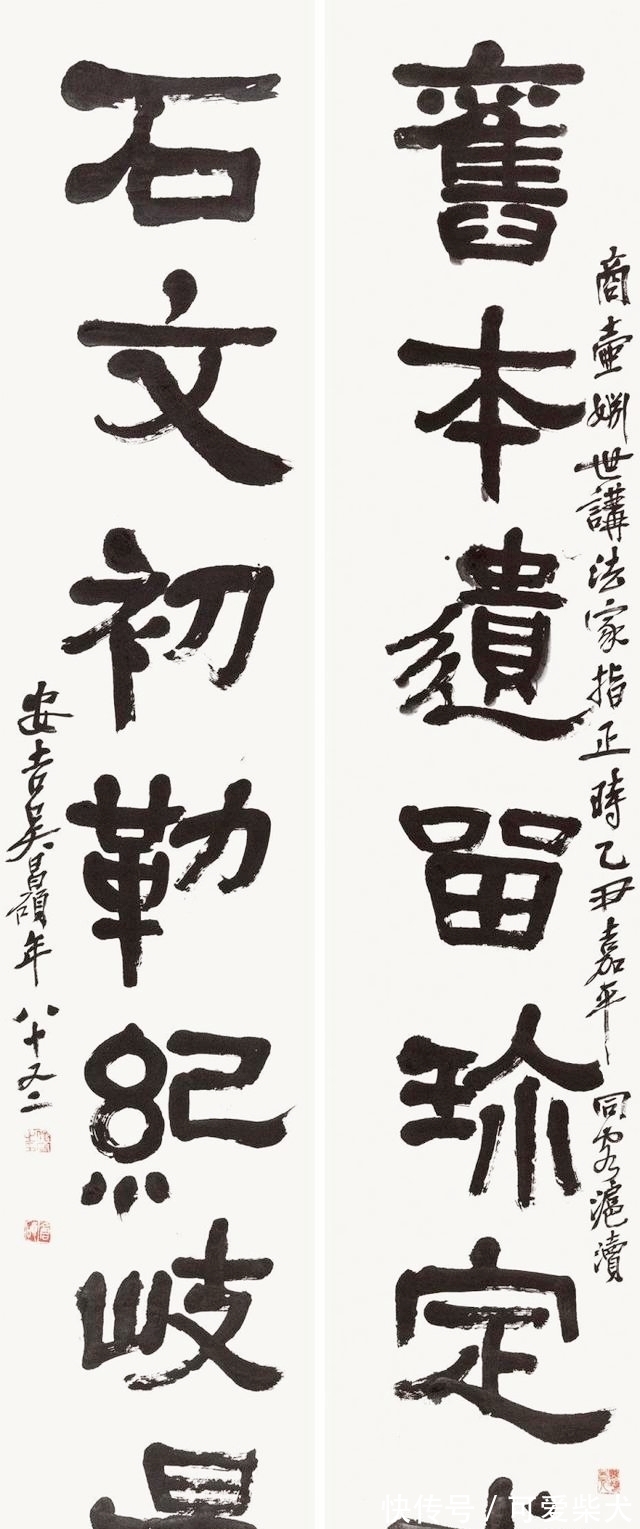 商壺婣世講法家指正時乙丑嘉平同客滬瀆
舊本遺留珎定
石文初勒紀岐
安吉吳昌碩年八十又二
快传号 / 可爱柴犬